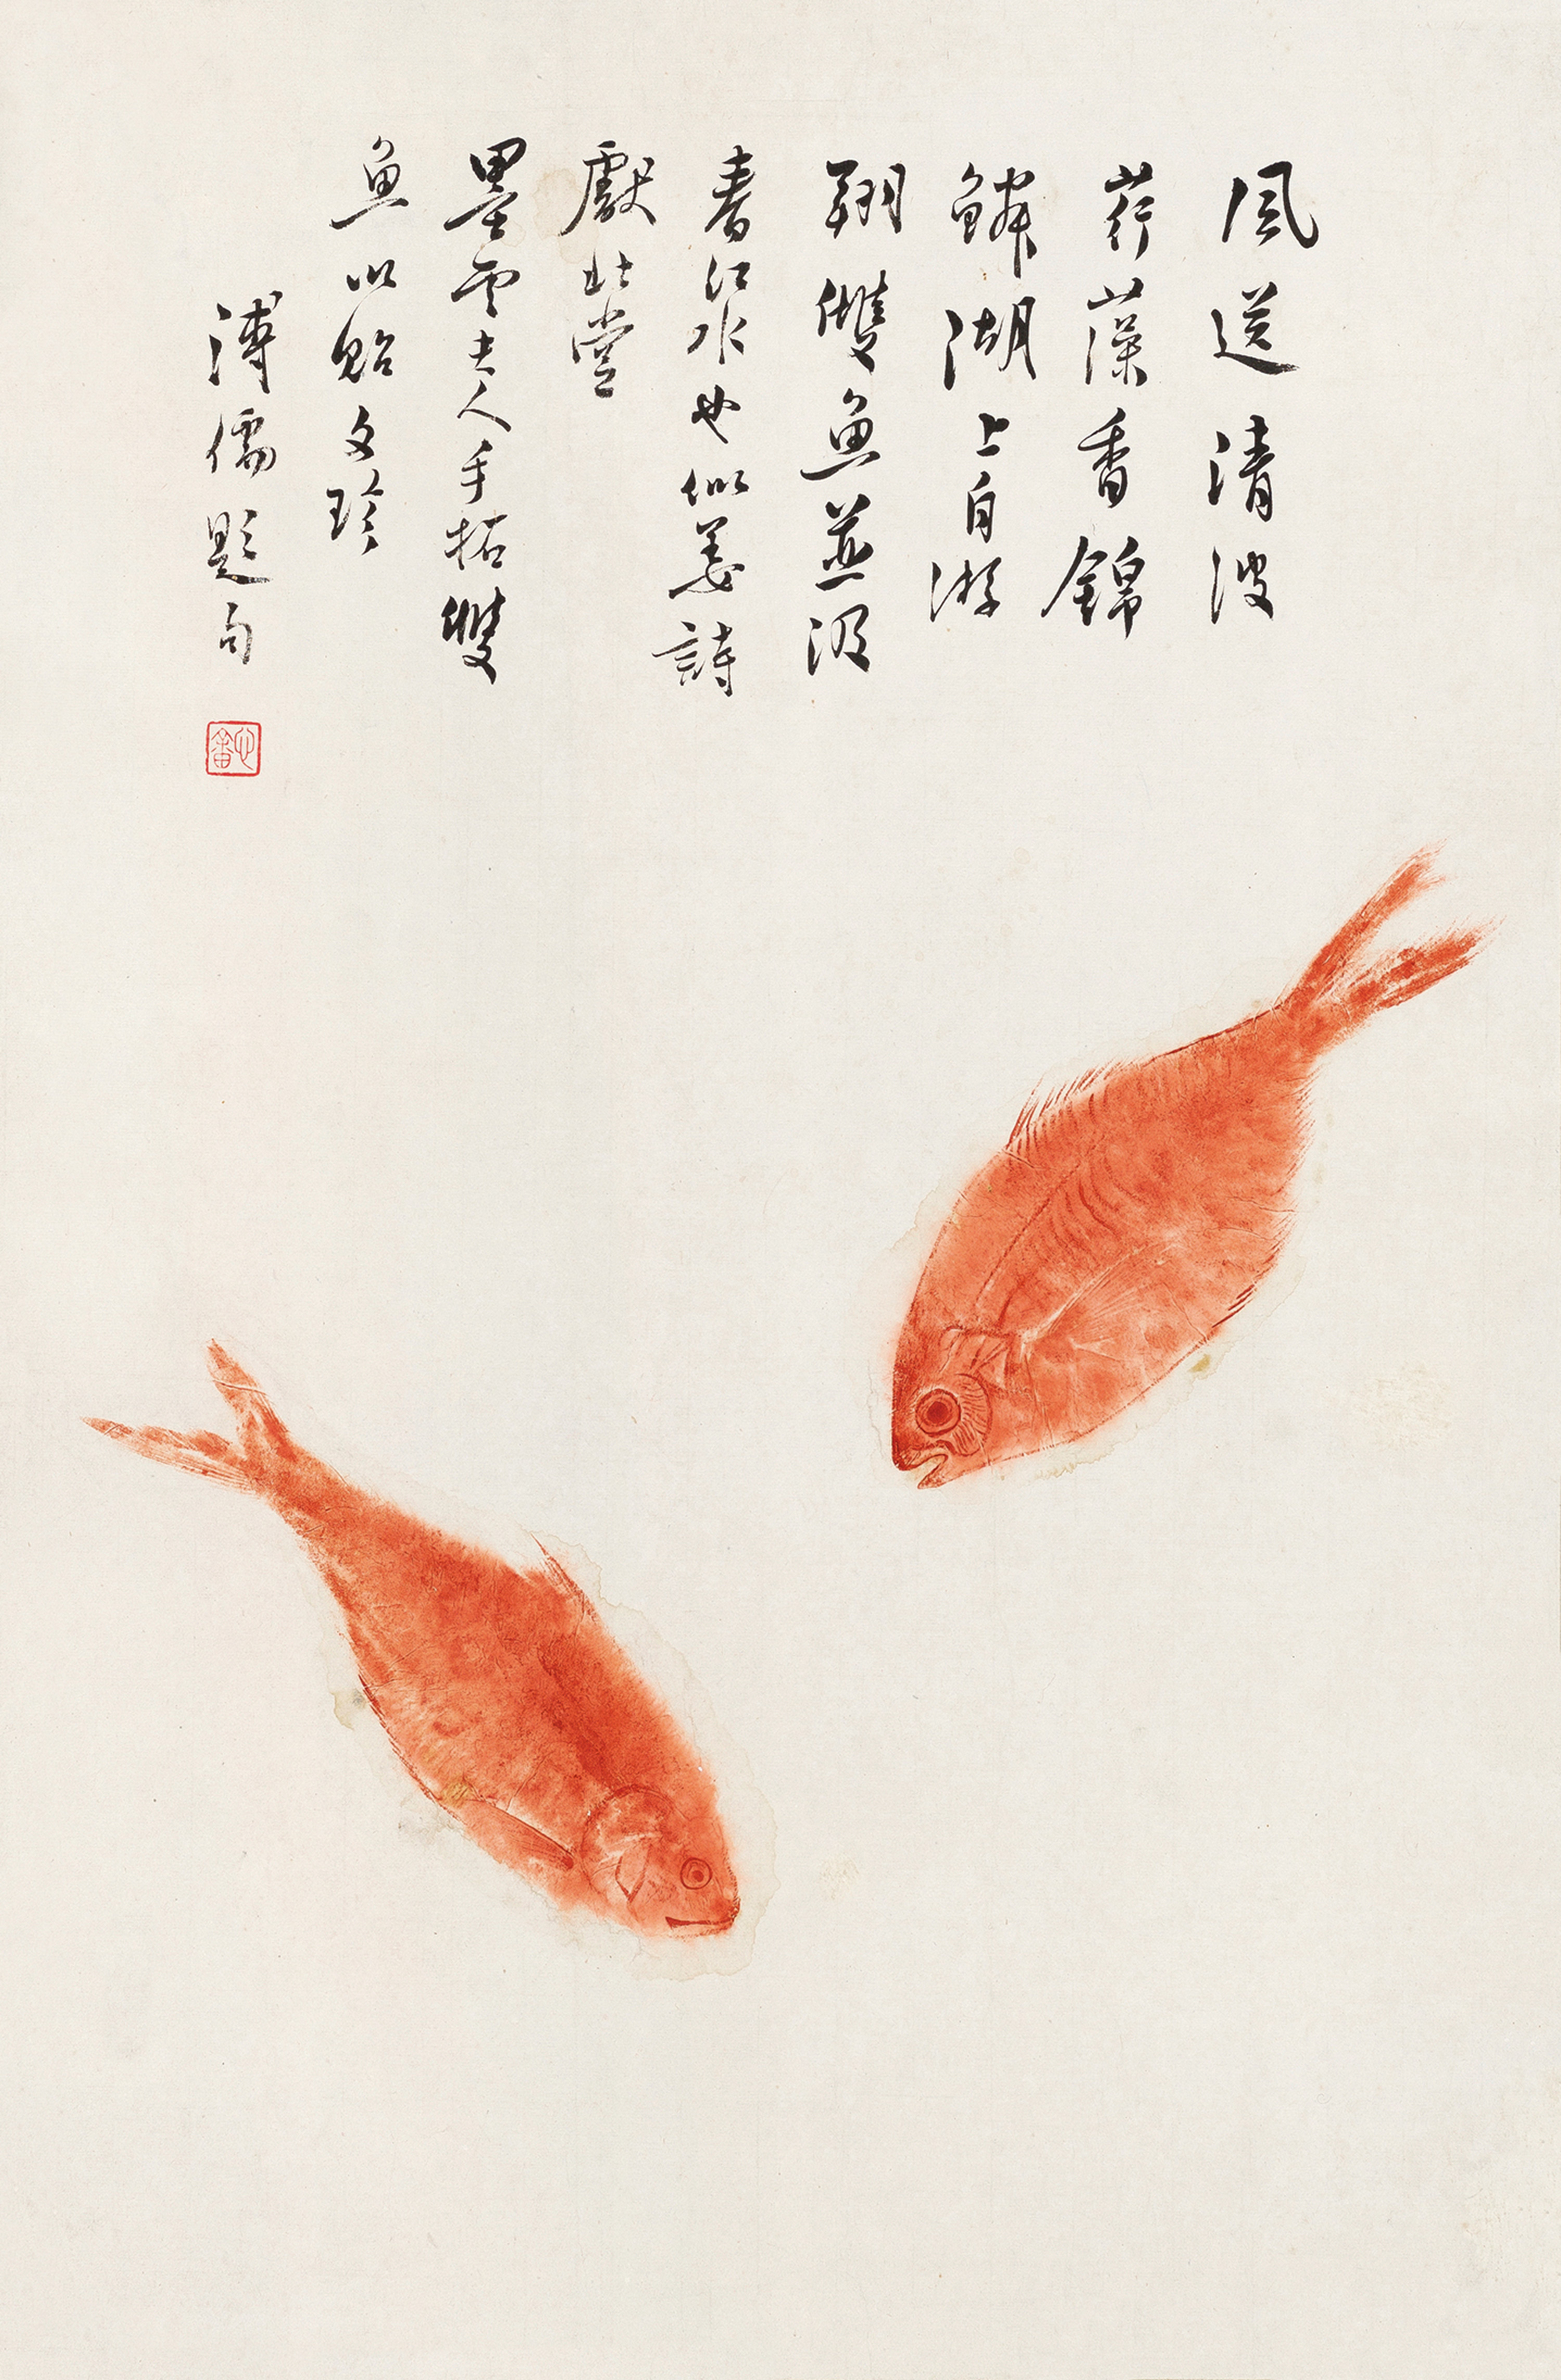 風送清波
荇藻香錦
鱗湖上自游
翔雙魚並汲
春江水也似姜詩
獻北堂
墨雲夫人手拓雙
魚以貽文珍
溥儒題句
心畬